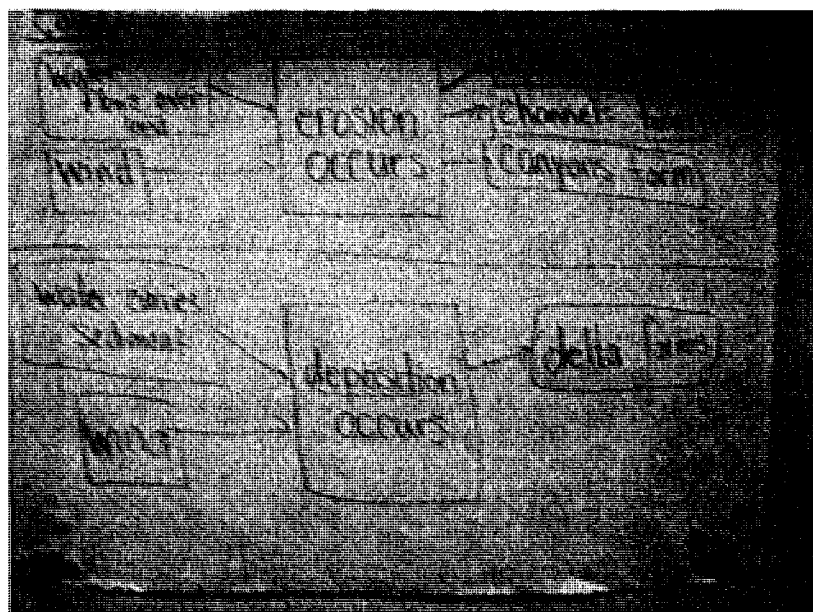 water
runs over
land
erosion
occurs
channels
wind
canyons form
water carries
sediment
deposition
occurs
delta forms
wind